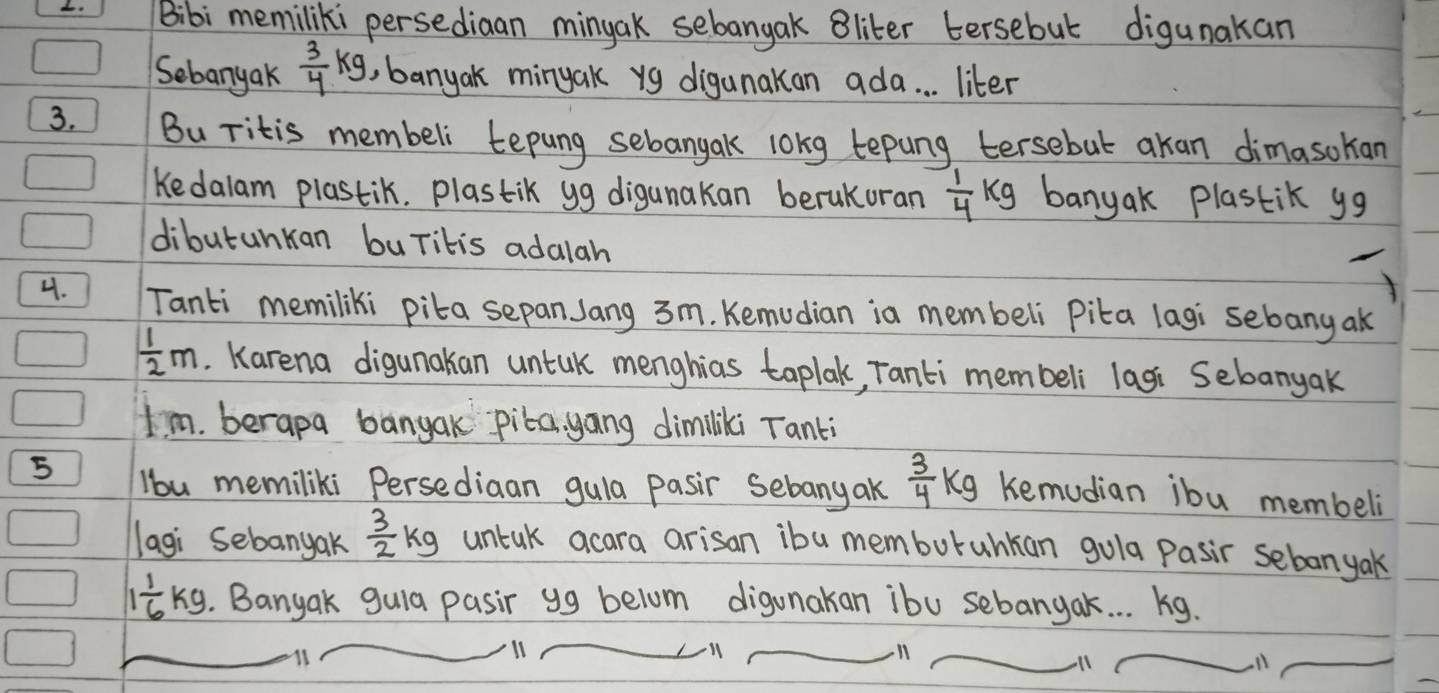 2. Bibi memiliki persediaan minyak sebanyak 8liter tersebut digunakan
Sebanyak 3/4 kg, banyak minyak yg digunakan ada... liter
3. Bu Titis membeli tepung sebanyak 10kg tepung tersebut akan dimasokan
Kedalam plastik. plastik yg digunakan berukuran 1/4 kg banyak plastik yg
dibutuhkan bu Titis adalah
4. Tanti memiliki pita sepanjang 3m. Kemudian ia membeli Pita lagi sebanyak
1/2 m. Karena digunakan untuk menghias taplak, Tanti membeli lagi Sebanyak
1 m. berapa banyak pita yang dimiliki Tanti
5 Ibu memiliki Persediaan gula pasir Sebanyak 3/4 Kg Kemudian ibu membeli
lagi Sebanyak 3/2 kg untuk acara arisan ibu membutuhkan gula Pasir Sebanyak
1 1/6 Kg. Banyak gula pasir yg belum digunakan ibu sebanyak... kg.